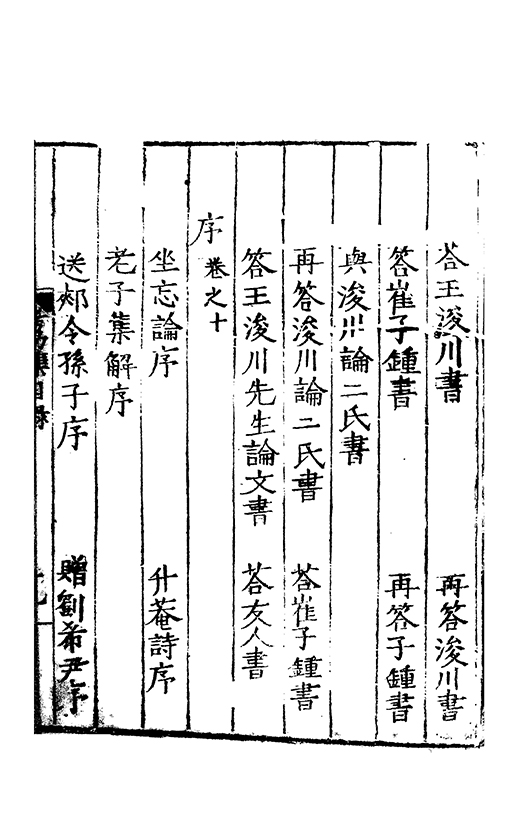 荅王浚川書　再答浚川書
答崔子鍾書　再答子鍾書
與浚川論二氏書
再答浚川論二氏書　荅崔子鍾書
答王浚川先生論文書　荅友人書
序 卷之十
坐忘論序　升菴詩序
老子集解序
送郟令孫子序　贈劉希尹序
目録